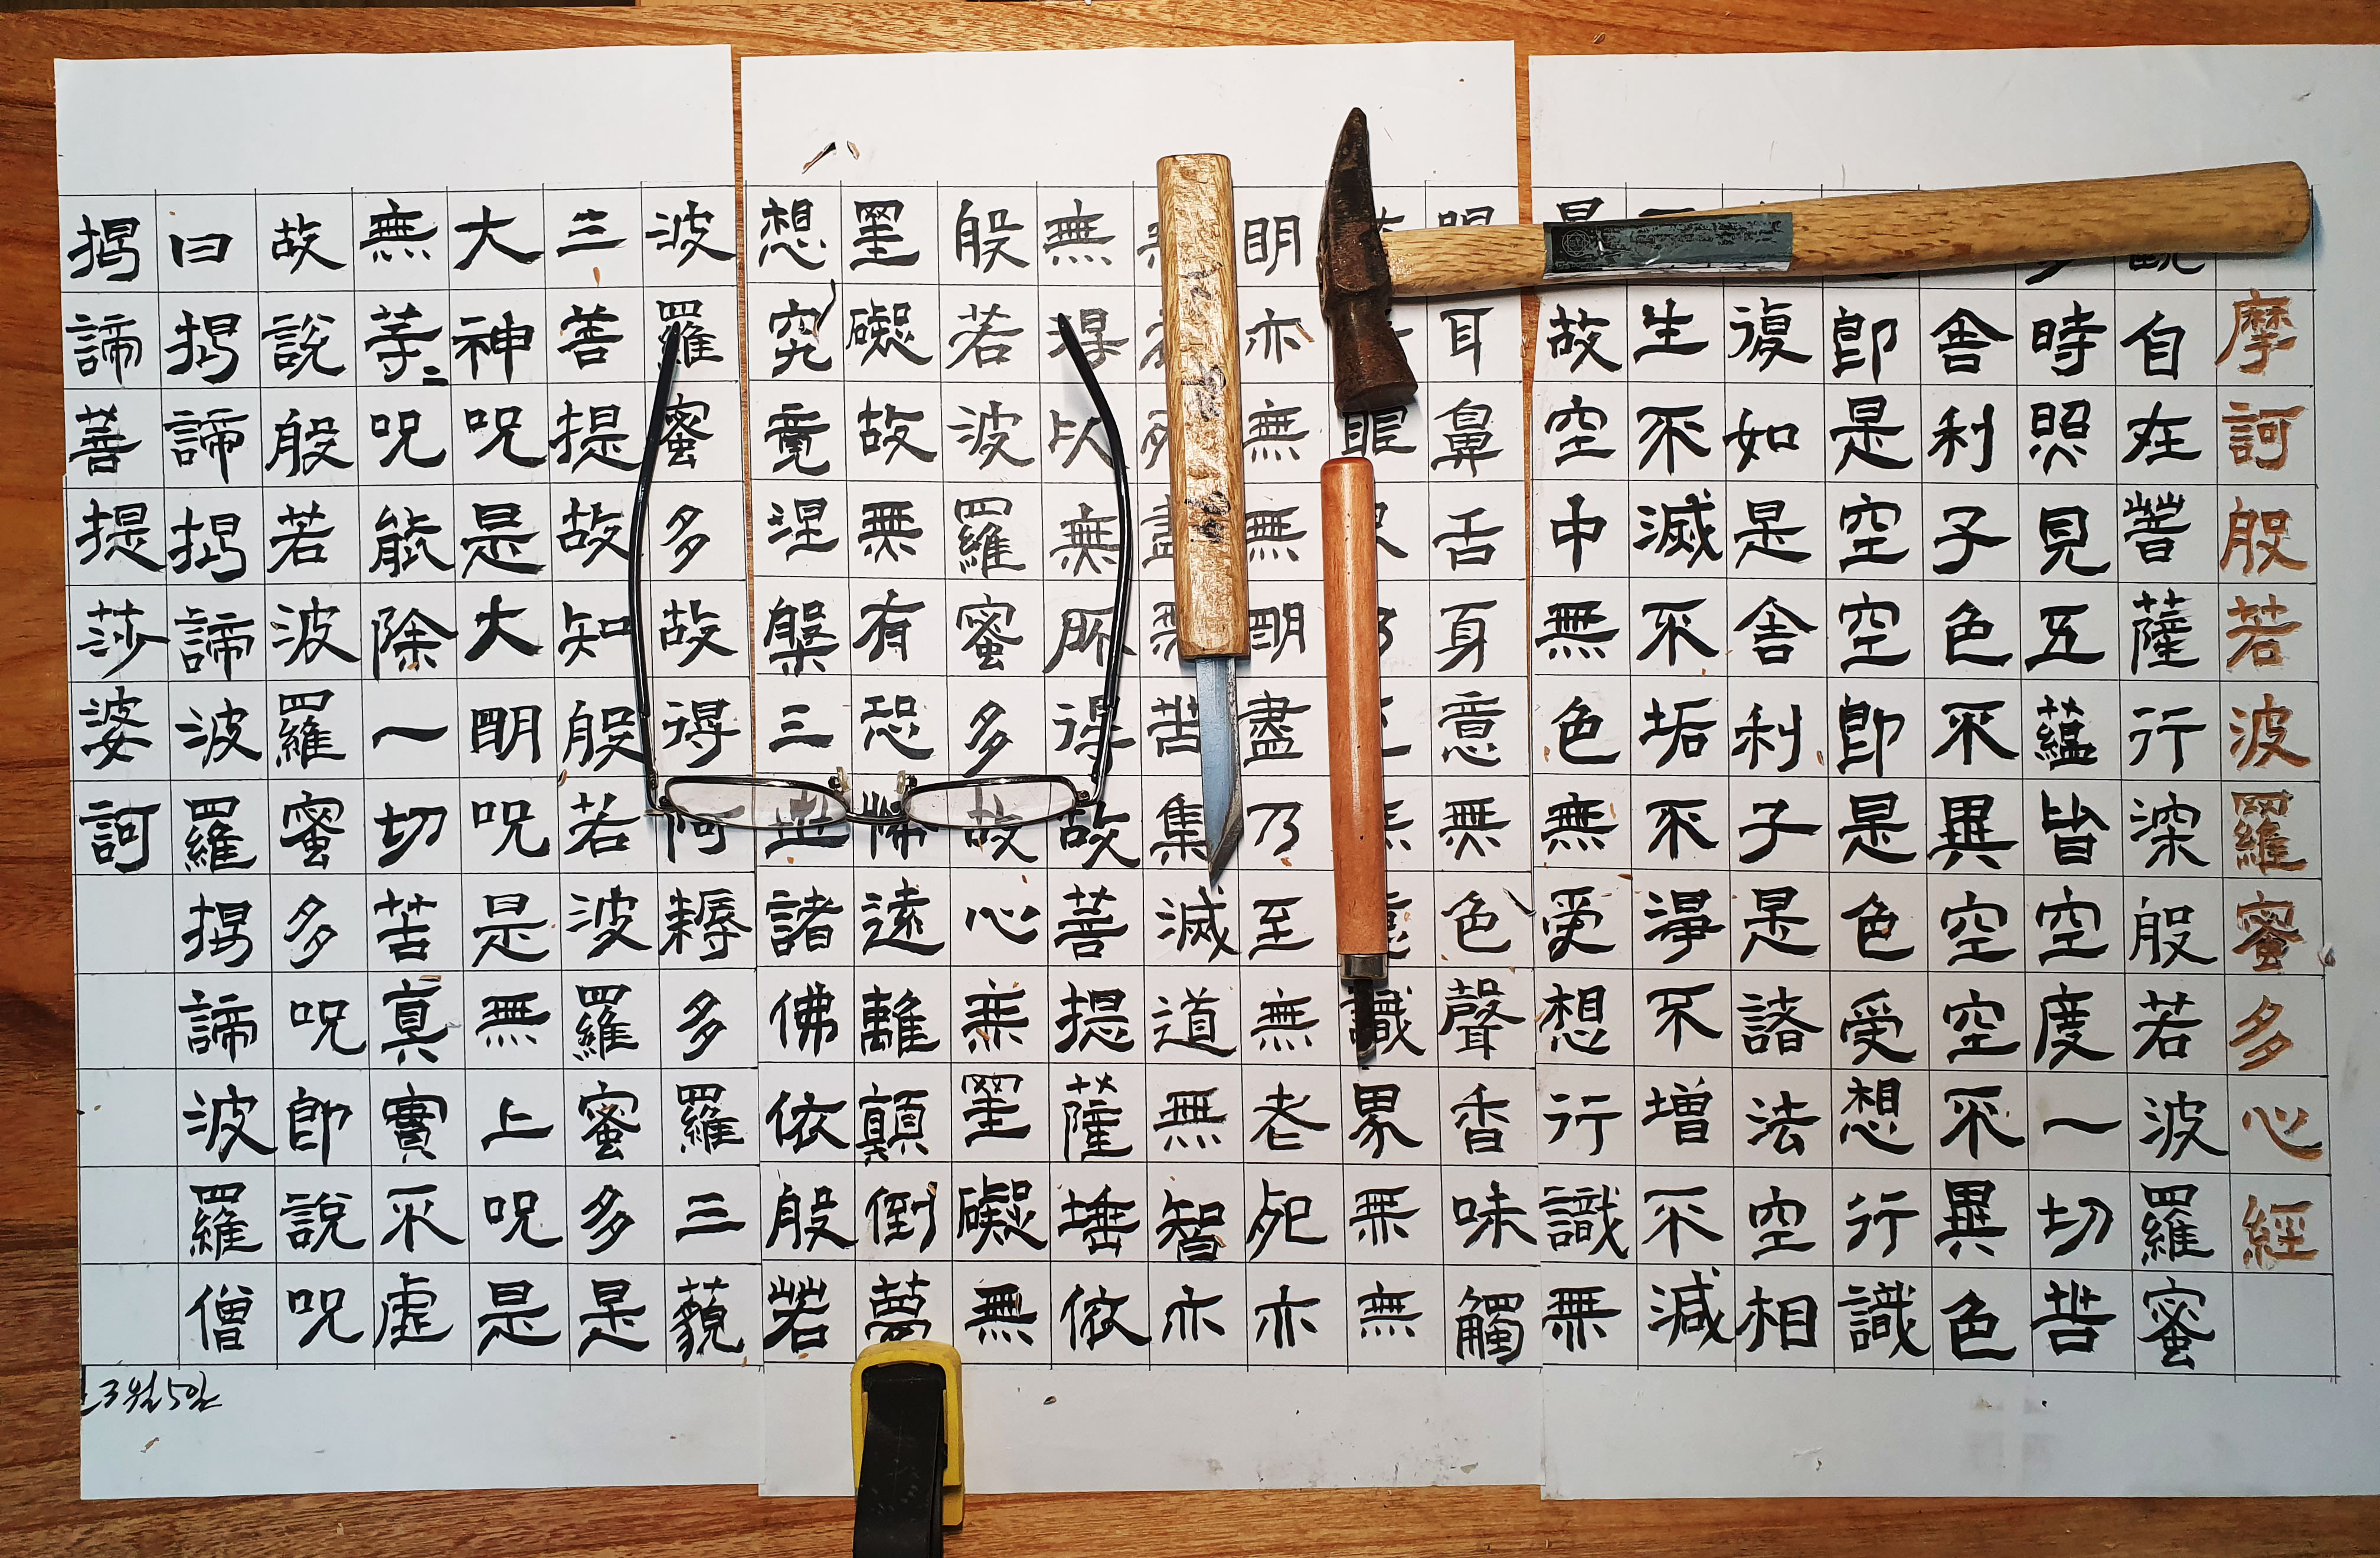 摩訶般若波羅蜜多心經
觀自在菩薩行深般若波羅蜜
多時照見五蘊皆空度一切苦
舍利子色不異空空不異色
即是空空即是色受想行識
復如是舍利子是諸法空相
不生不滅不垢不淨不增不減
是故空中無色無受想行識無
眼耳鼻舌身意無色聲香味觸
眼識界無無
明亦無無明盡乃至無老死亦
苦集滅道無智亦
無得以無所得故菩提薩埵依
般若波羅蜜多故心無罣礙無
罣礙故無有恐怖遠離顛倒夢
想究竟涅槃三世諸佛依般若
波羅蜜多故得阿耨多羅三藐
三菩提故知般若波羅蜜多是
大神呪是大明呪是無上呪是
無等〻呪能除一切苦真實不虛
故說般若波羅蜜多呪即說呪
曰揭諦揭諦波羅揭諦波羅僧
揭諦菩提莎婆訶
3월5일